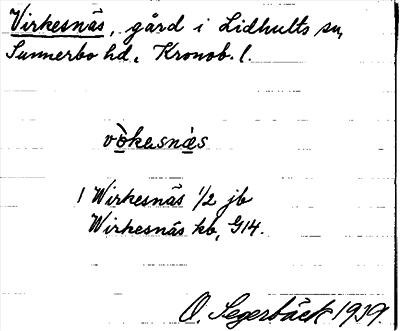 Virkesnäs, gård i Lidhults sn,
Sunnerbo hd, Kronob. l.
vòkesnæs
1 Wirkesnäs 1/2 jb
Wirkesnäs kb, G14.
O. Segerbäck 1939.